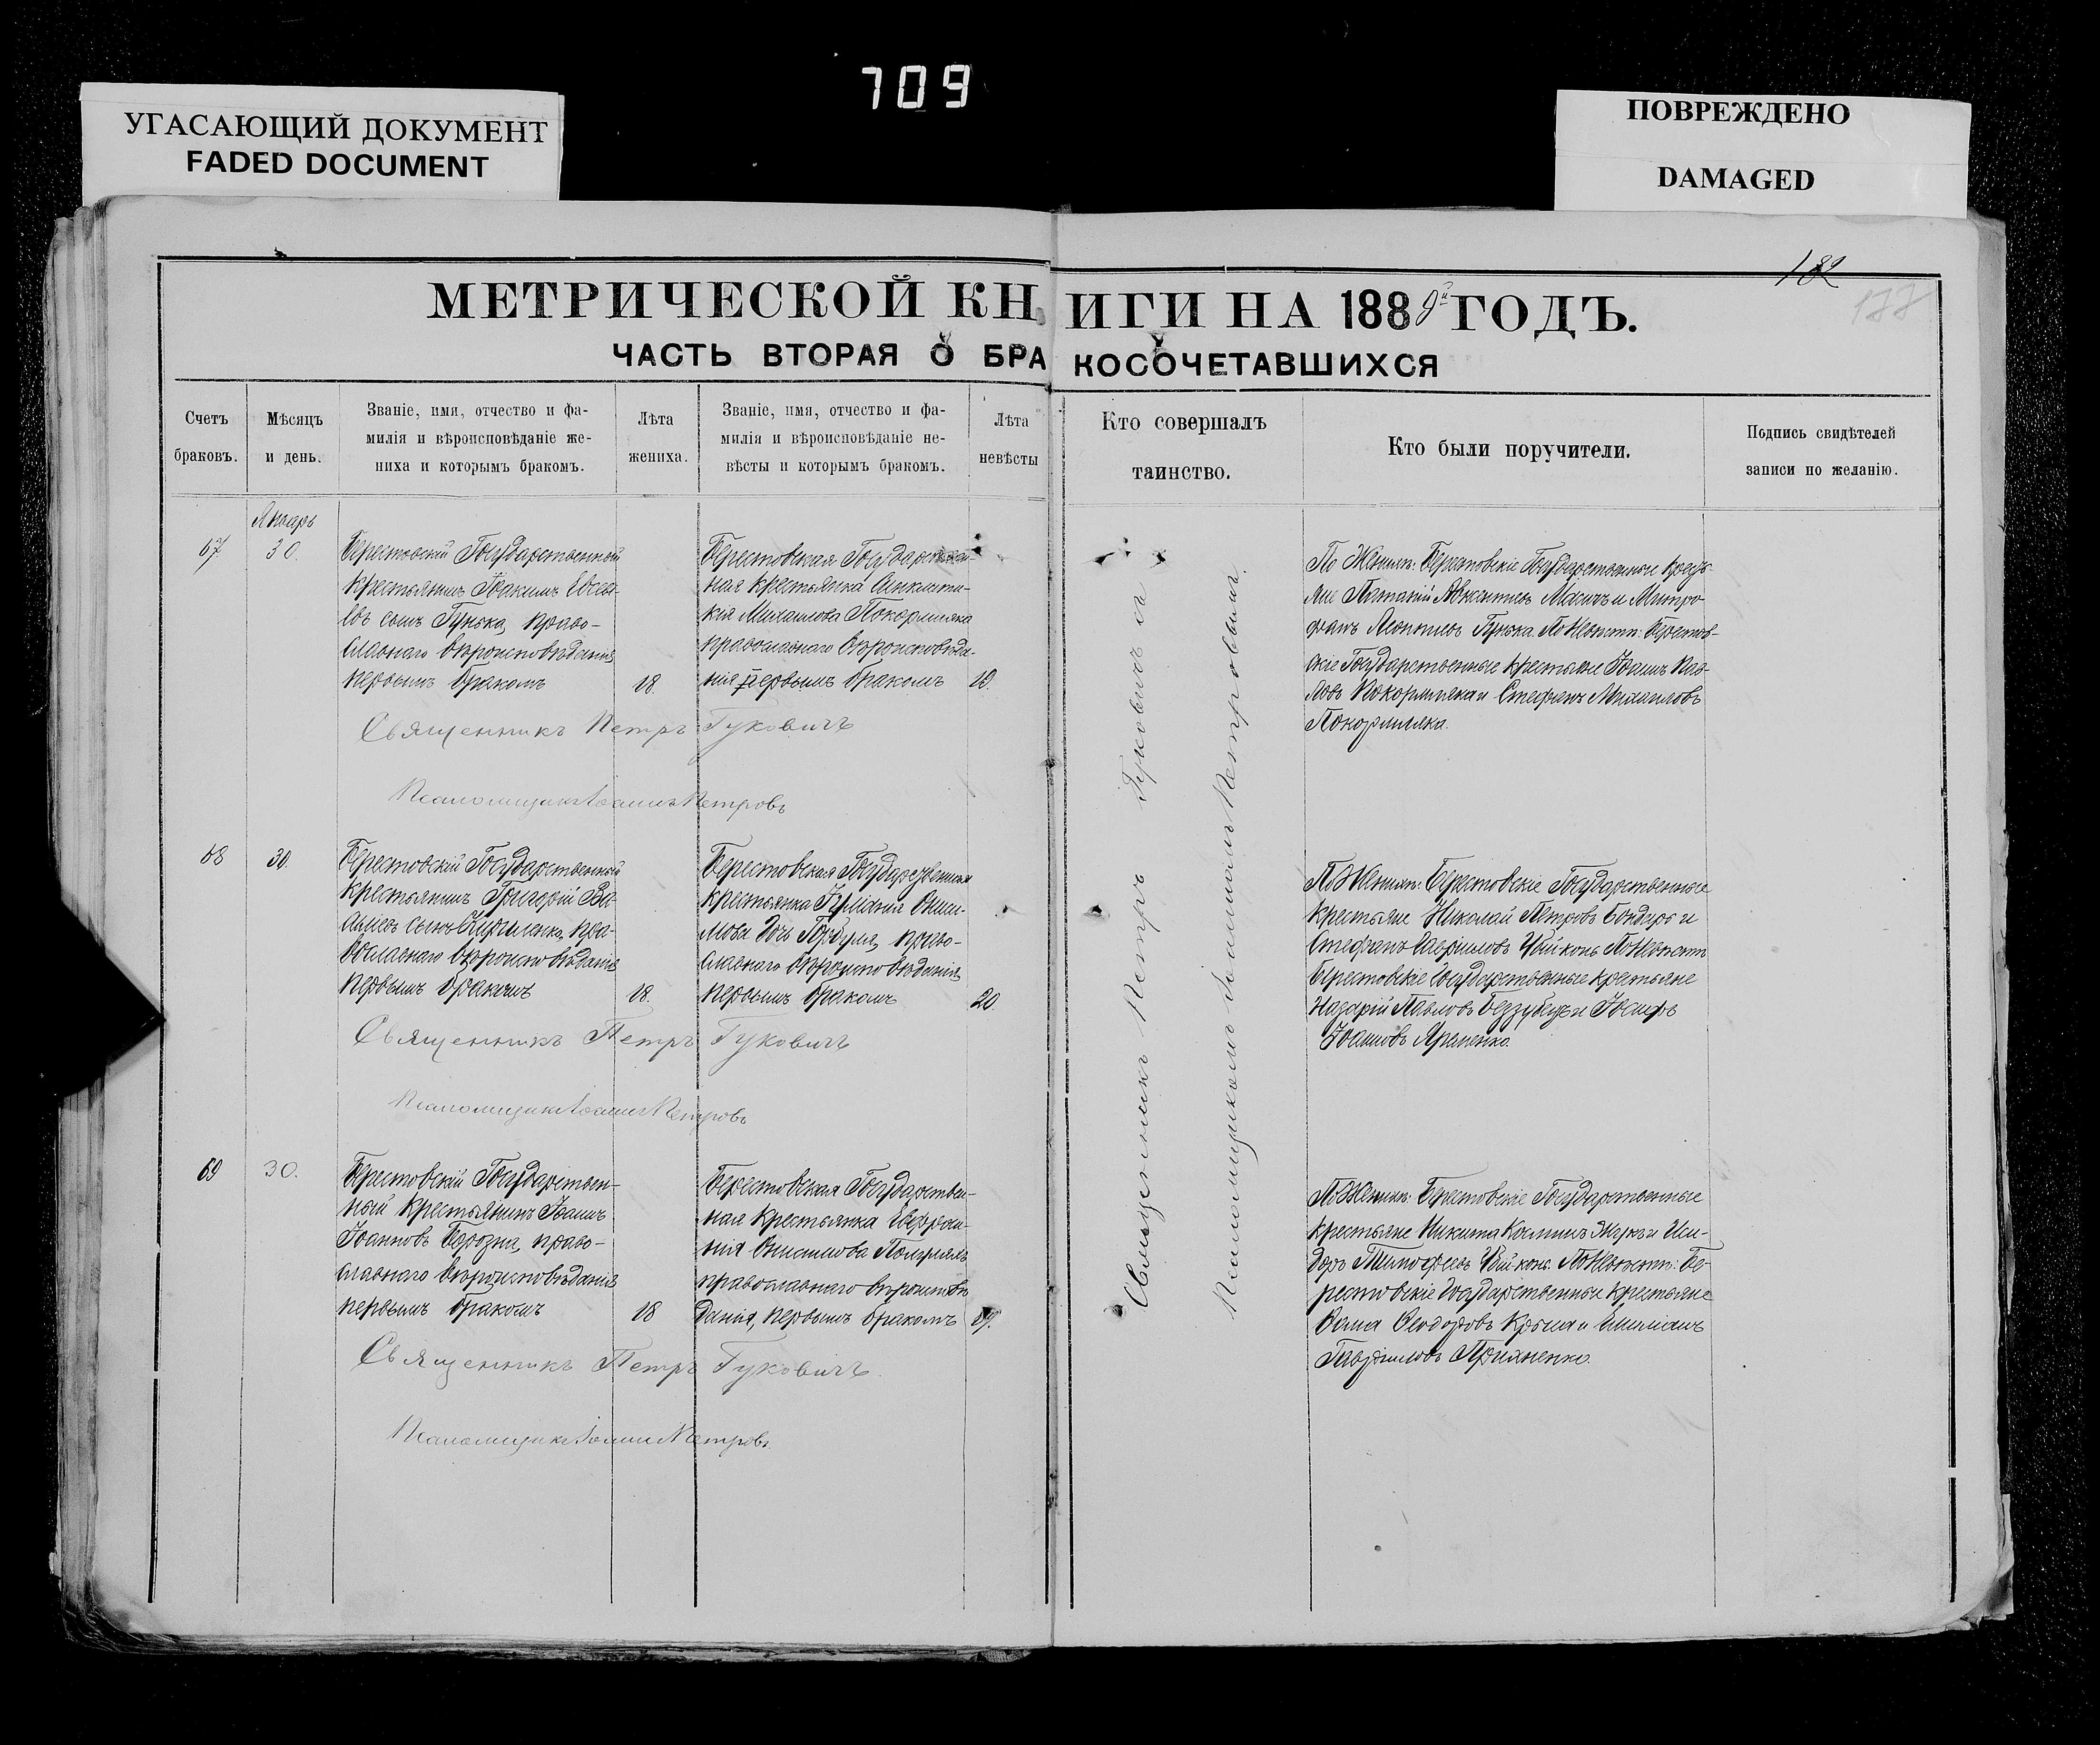 709
УГАСАЮЩИЙ ДОКУМЕНТ
FADED DOCUMENT
ПОВРЕЖДЕНО
DAMAGED
182
177
МЕТРИЧЕСКОЙ КНИГИ НА 1889й ГОДЪ.
ЧАСТЬ ВТОРАЯ О БРАКОСОЧЕТАВШИХСЯ
Счетъ
браковъ.
Мѣсяцъ
и день.
Званіе, имя, отчество и фа-
милія и вѣроисповѣданіе же-
ниха и которымъ бракомъ.
Лѣта
жениха.
Званіе, имя, отчество и фа-
милія и вѣроисповѣданіе не-
вѣсты и которымъ бракомъ.
Лѣта
невѣсты
Кто совершалъ
таинство.
Кто были поручители.
Подпись свидѣтелей
записи по желанію.
Январь
67
30.
Берестовскій Государственный
крестьянинъ Іоакимъ Евсеі-
евъ сынъ Гунька, право-
славнаго вѣроисповѣданія
первымъ бракомъ
18.
Берестовская Государствен-
ная крестьянка
Михаилова Покормляка
православнаго вѣроисповѣда-
нія первымъ бракомъ
19.
По Женихѣ: Берестовскіе Государственные кресть-
яне и Митро-
фанъ Гунька По Невѣстѣ: Берестов-
скіе Государственные крестьяне Іоаннъ Пав-
ловъ Покормляка и Стефанъ Михаиловъ
Покормляка.
Священникъ Петръ Гуковичъ
Псаломщикъ Іоаннъ Петровъ
68
30.
Берестовскій Государственный
крестьянинъ Григорій Ва-
сынъ пра-
вославнаго вѣроисповѣданія
первымъ бракомъ
18.
Берестовская Государственная
крестьянка Онис-
мова дочь право-
славнаго вѣроисповѣданія
первымъ бракомъ
20.
По Женихѣ: Берестовскіе Государственные
крестьяне Николай Петровъ Бондарь и
Стефанъ Гавриловъ По Невѣстѣ
Берестовскіе Государственные крестьяне
Назарій Павловъ Беззубецъ и Іосифъ
Іоанновъ
Священникъ Петръ Гуковичъ
Псаломщикъ Іоаннъ Петровъ
69
30.
Берестовскій Государствен-
ный крестьянинъ Іоаннъ
Іоанновъ Борозна, право-
славнаго вѣроисповѣданія
первымъ бракомъ
18
Берестовская Государствен-
ная крестьянка Евфроси-
нія
православнаго вѣроисповѣ
данія, первымъ бракомъ
19.
По Женихѣ: Берестовскіе Государственные
крестьяне Никита Козминъ Жукъ и Иси-
доръ Тимофеевъ По Невѣстѣ: Бе-
рестовскіе Государственные крестьяне
Ѳома Ѳеодоровъ
Гавріиловъ
Священникъ Петръ Гуковичъ.
Псаломщикъ Іоаннъ Петровъ
Священникъ Петръ Гуковичъ съ
Псаломщикомъ Іоанномъ Петровымъ.